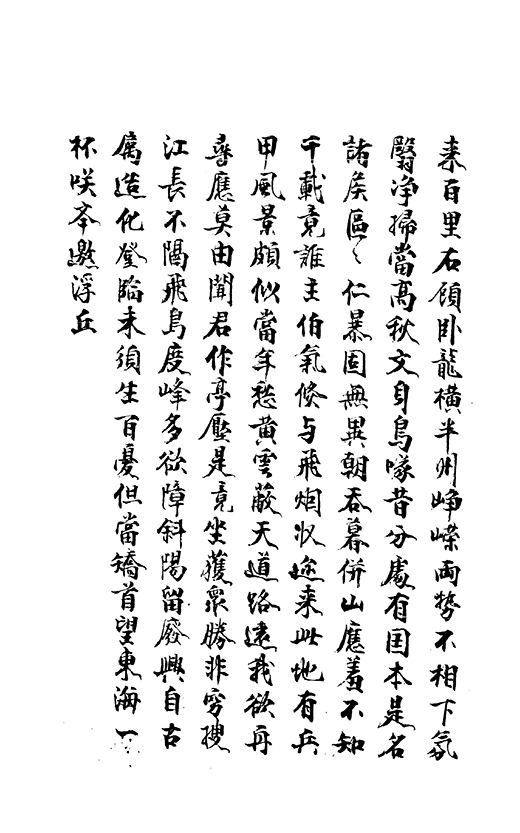 来百里石頎卧龍橫半州崢嶸両勢不相下氛
翳净掃當髙秋文身鳥喙昔分處有国本是名
諸侯區〻仁暴固無異朝吞暮併山應羞不知
千載竟誰主伯氣倐与飛烟收迩来此地有兵
甲風景頗似當年愁黄雲蔽天道路遠我欲再
尋應莫由聞君作亭壓是竟坐獲衆勝非窮搜
江長不隔飛鳥度峰多欲障斜陽留廢興自古
屬造化登臨未須生百憂但當矯首望東海一
杯咲夲邀浮丘